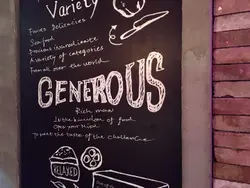 Variety
Fuxies Delicacies
Sea food
Precious ingredients
A variety of categories
From all over the world
GENEROUS
Rich man
In the kingdom of food
Open your mind
To meet the taste of the challenge
RELAXED